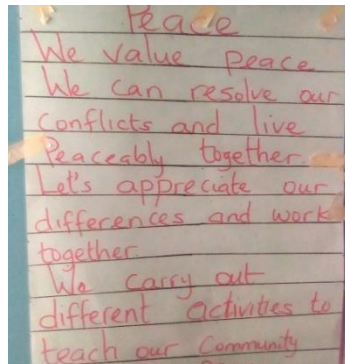 Peace
We value peace
We can resolve our
conflicts and live
Peaceably together.
Let's appreciate our
differences and work
together.
We carry out
different activities to
teach our Community